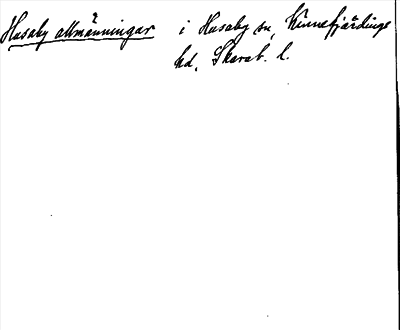 Husaby allmänningar i Husaby sn, Kinnefjärdings
hd, Skarab. l.